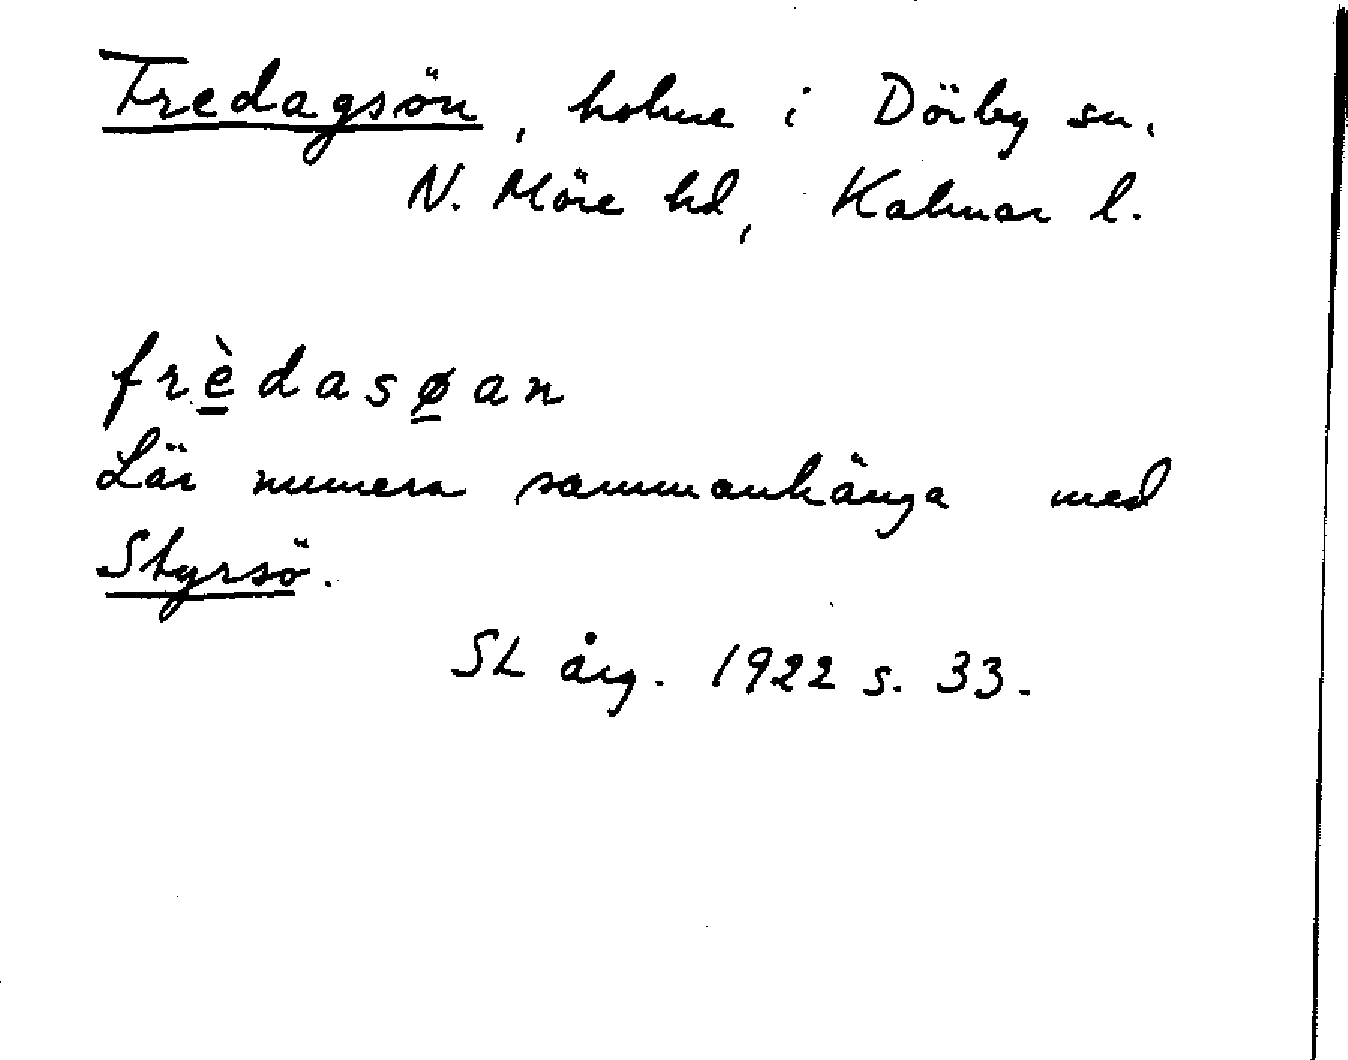 Fredagsön, holme i Dörby sn.
N. Möre hd, Kalmar l.
frè̱dasø̱an
Lär numera sammanhänga med
Styrsö.
SL årg. 1922 s. 33.